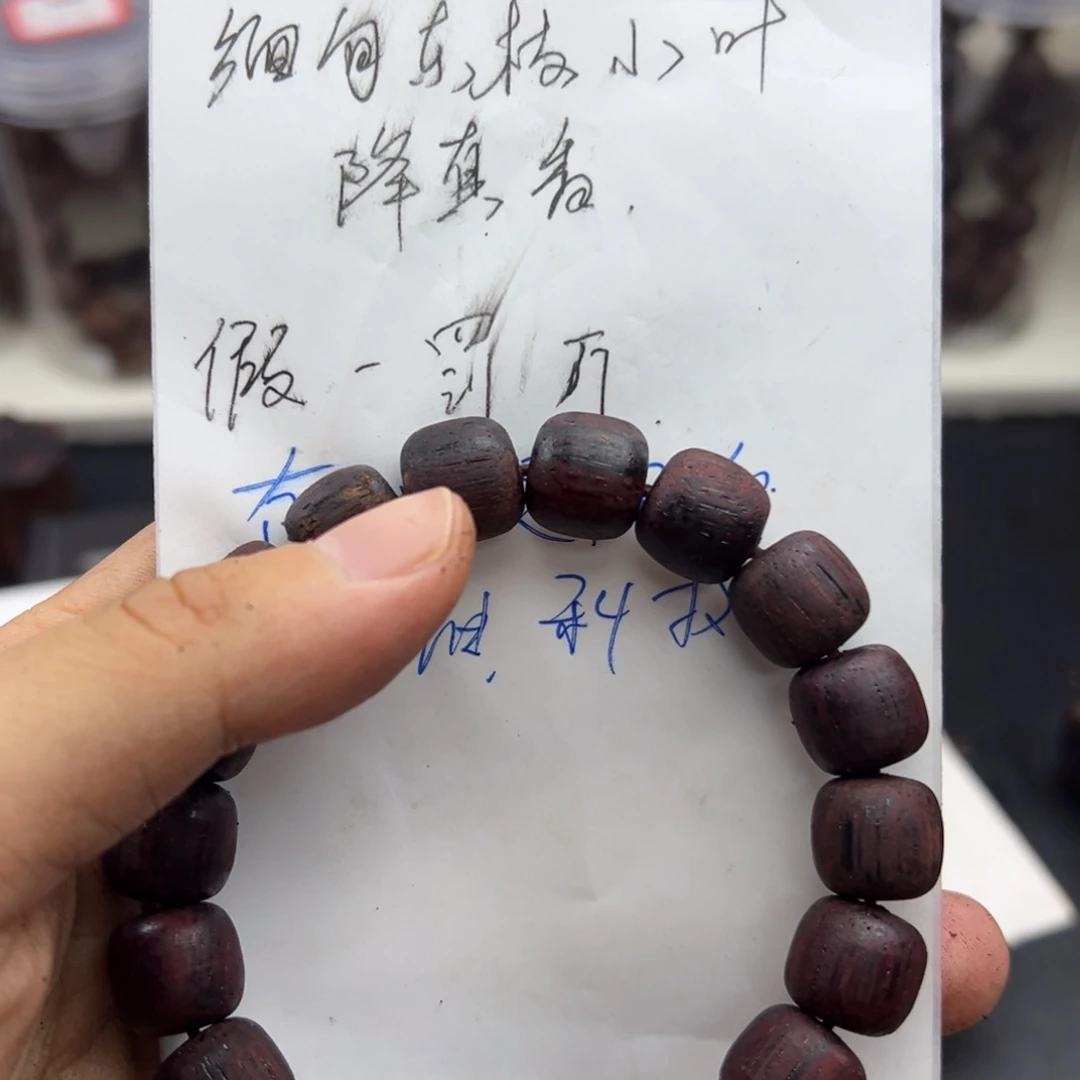 缅甸东枝小叶
降真香.
假一罚万
科技